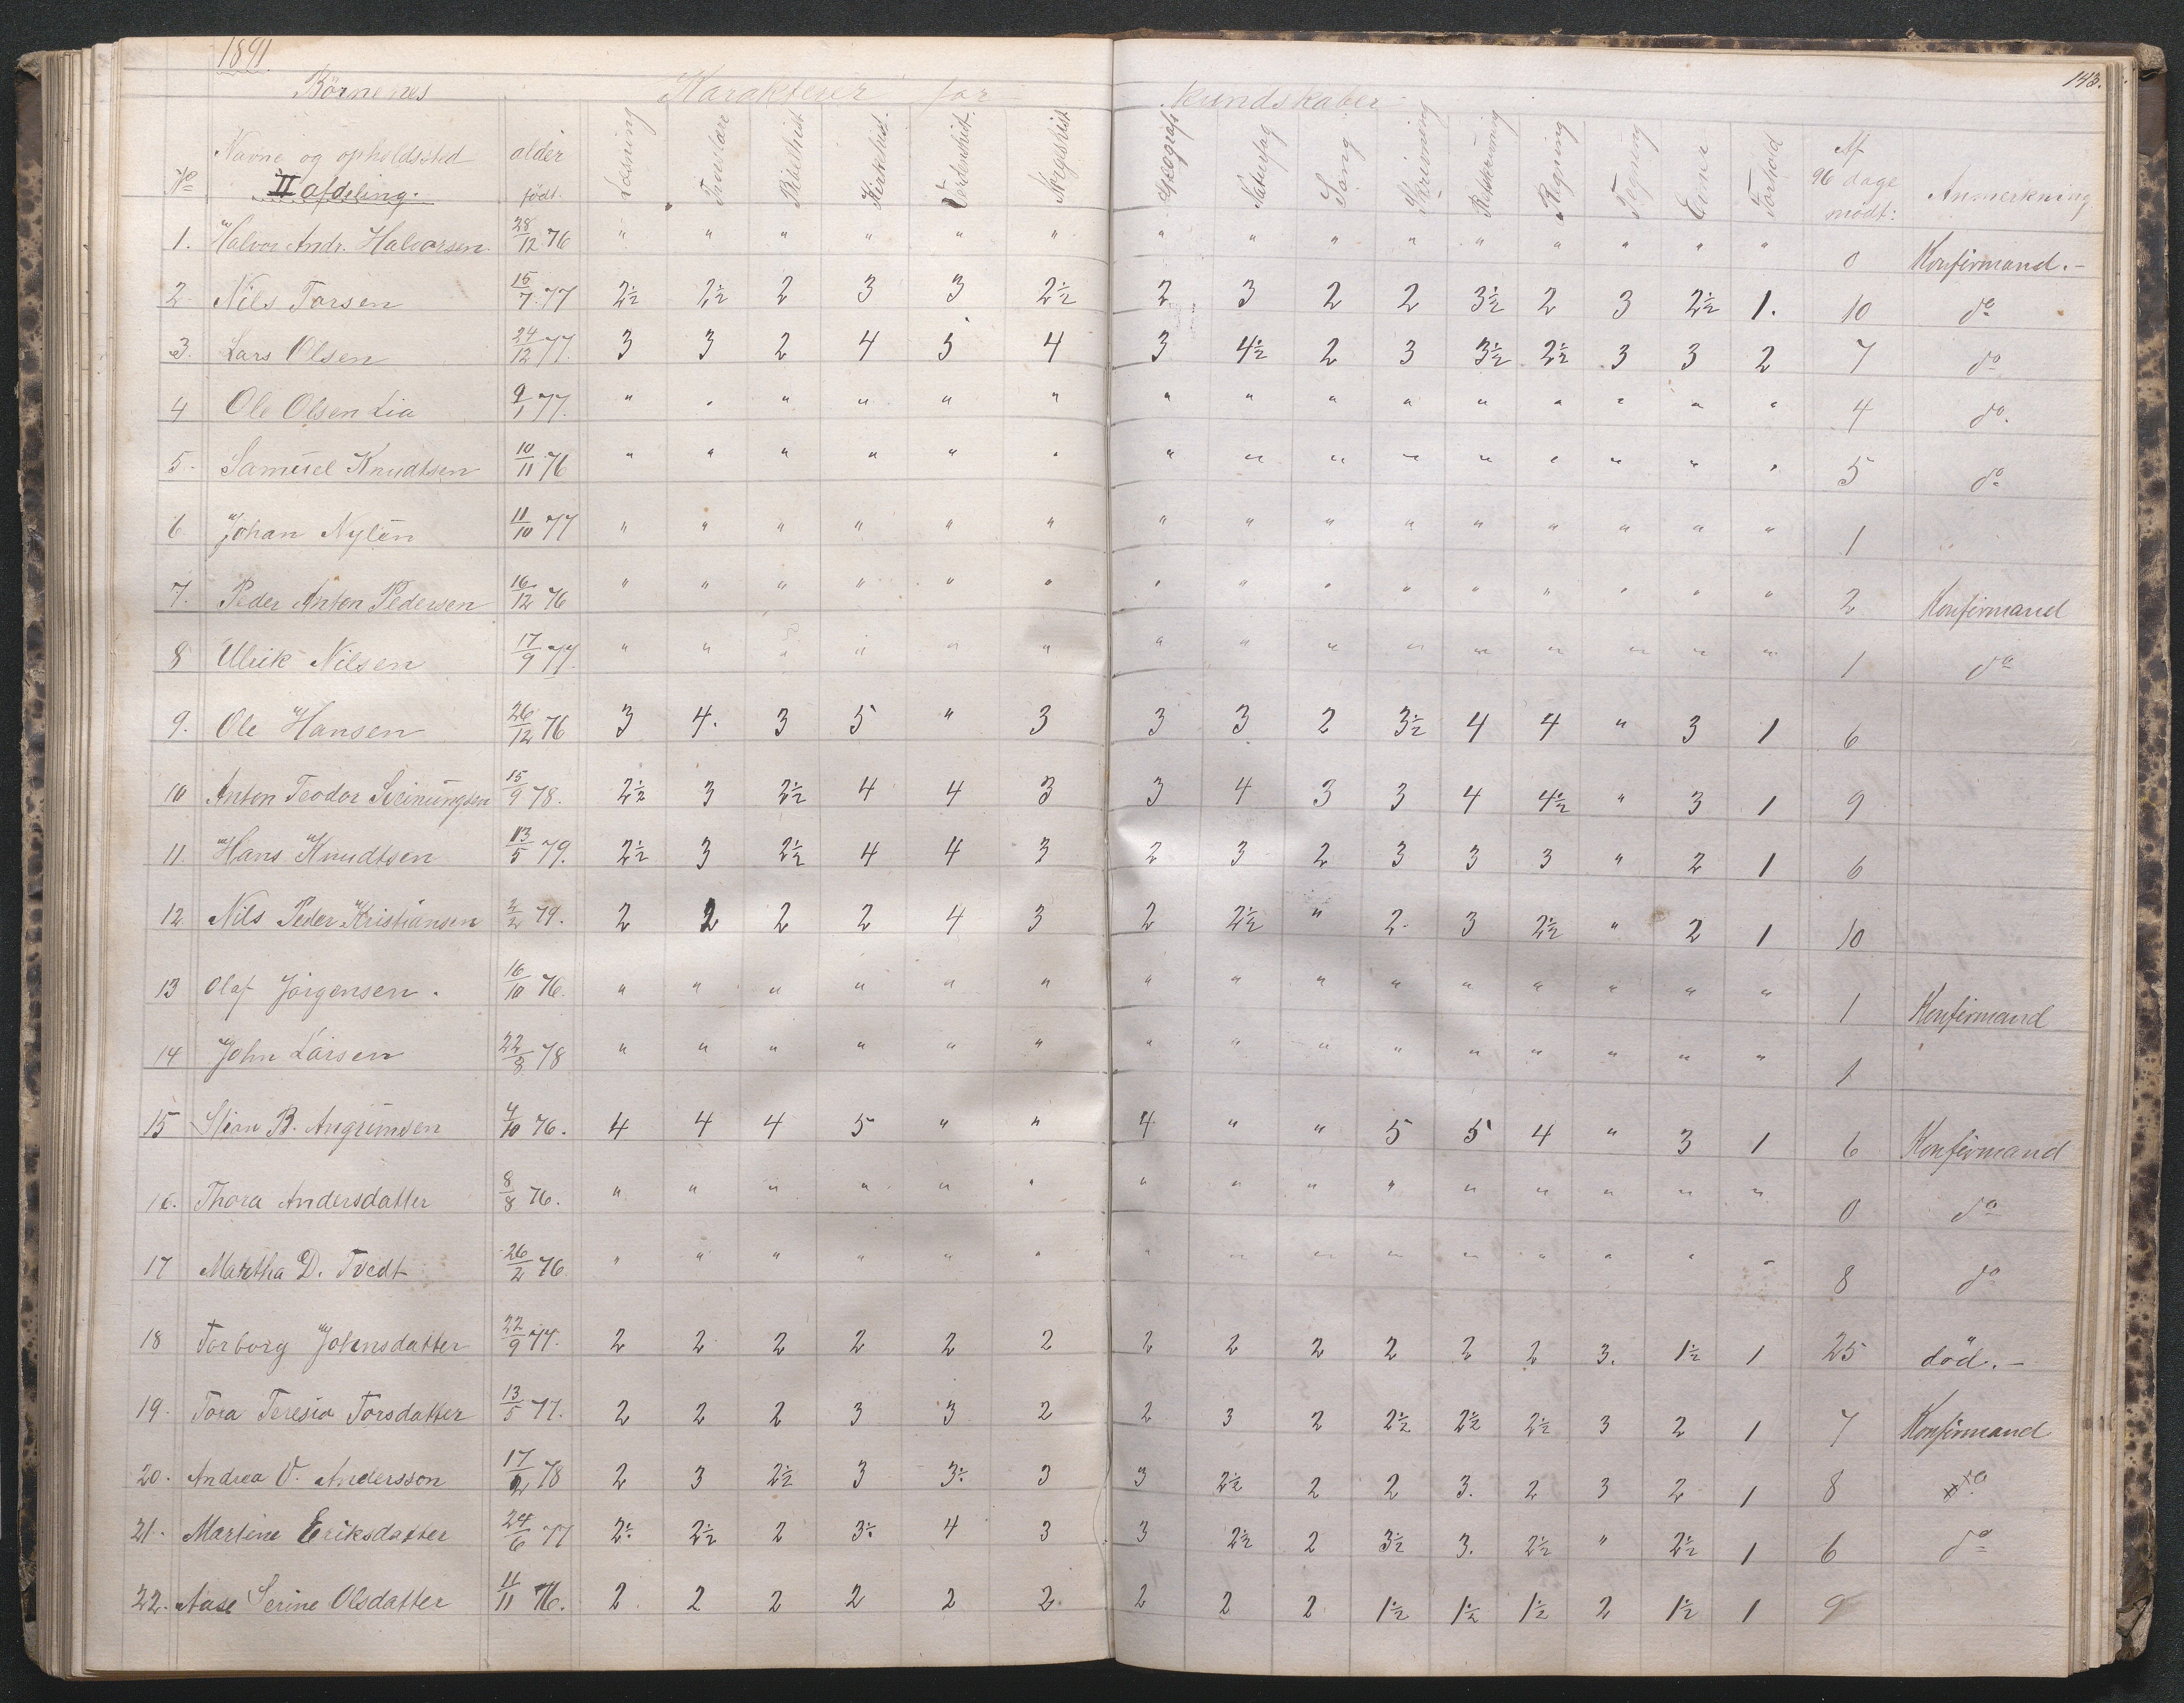 1891.
143.
Börnenes Karakterer for kundskaber
No Navne og opholdssted alder Læsning Troeslære Bibelhist. Kirkehist. Verdenshist. Norgeshist. Geograf. Naturfag Sang Skrivning Retskrivning Regning Tegning Evner Forhold Af 96 dage mødt: Anmerkning
II afdeling. født.
1. Halvor Andr. Halvorsen 28/12 76 " " " " " " " " " " " " " " " 0 Konfirmand.-
2 Nils Torsen 15/7 77 2½ 2½ 2 3 3 2½ 2 3 2 2 3½ 2 3 2½ 1. 10 do
3. Lars Olsen 24/12 77. 3 3 2 4 5 4 3 4½ 2 3 3½ 2½ 3 3 2 7 do
4 Ole Olsen Lia 9/1 77. " " " " " " " " " " " " " " " 4 do.
5. Samuel Knudtsen 10/11 76 " " " " " " " " " " " " " " " 5 do
6 Johan Nylén 11/10 77 " " " " " " " " " " " " " " " 1
7. Peder Anton Pedersen 16/12 76 " " " " " " " " " " " " " " " 2 Konfirmand
8 Ulrik Nilsen 17/9 77. " " " " " " " " " " " " " " " 1 do
9. Ole Hansen 26/12 76 3 4. 3 5 " 3 3 3 2 3½ 4 4 " 3 1 6
10 Anton Teodor Sveinungsen 15/9 78. 2½ 3 2½ 4 4 3 3 4 3 3 4 4½ " 3 1 9
11. Hans Knudtsen 13/5 79. 2½ 3 2½ 4 4 3 2 3 2 3 3 3 " 2 1 6
12 Nils Peder Kristiansen 2/2 79. 2 2 2 2 4 3 2 2½ " 2. 3 2½ " 2 1 10
13 Olaf Jörgensen. 16/10 76. " " " " " " " " " " " " " " " 1 Konfirmand
14 John Larsen 22/8 78 " " " " " " " " " " " " " " " 1
15 Stian B. Angrimsen 4/10 76. 4 4 4 5 " " 4 " " 5 5 4 " 3 1 6 Konfirmand
16. Thora Andersdatter 8/8 76. " " " " " " " " " " " " " " " 0 do
17 Martha D. Tvedt 26/2 76 " " " " " " " " " " " " " " " 8 do
18 Torborg Johnsdatter 22/9 77. 2 2 2 2 2 2 2 2 2 2 2 2 3. 1½ 1 25 död.-
19. Tora Teresia Torsdatter 13/5 77. 2 2 2 3 3 2 2 3 2 2½ 2½ 2½ 3 2 1 7 Konfirmand
20. Andrea V. Andersson 17/2 78 2 3 2½ 3 3÷ 3 3 2½ 2 2 3. 2 3 2 1 8 do
21. Martine Eriksdatter 24/6 77 2÷ 2½ 2 3÷ 4 3 3 2½ 2 3½ 3. 2½ " 2½ 1 6 do
22. Aase Serine Olsdatter 11/11 76. 2 2 2 2 2 2 2 2 2 1½ 1½ 1½ 2 1½ 1 9